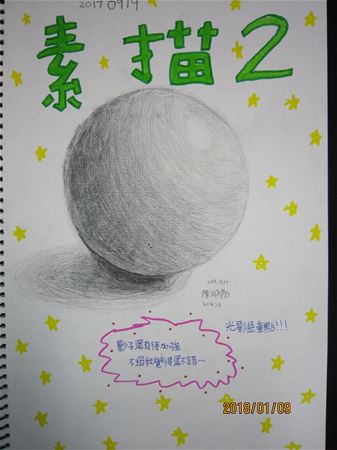 20170919
素描2
2017.9.19
光影是重點!!!
影子還有待加強
不過我覺得還不錯~
2018/01/09